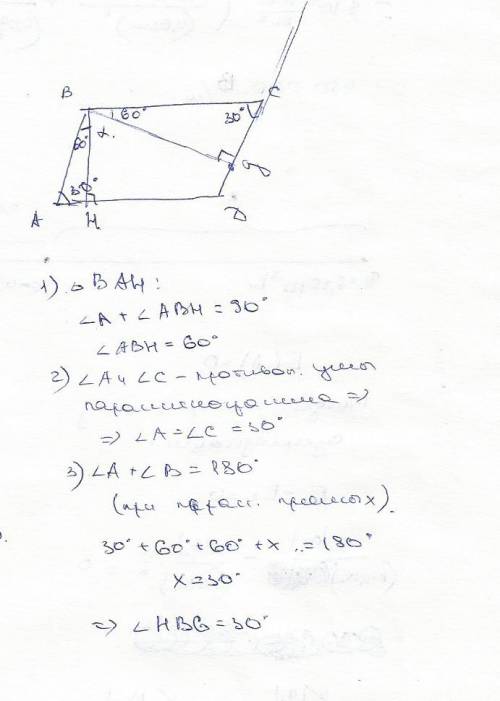 B
C
60°
30°
60°
α.
30°
A
H
D
1) △ BAH:
∠A + ∠ABH = 90°
∠ABH = 60°
2) ∠A и ∠C – противоп. углы
параллелограмма ⇒
⇒ ∠A = ∠C = 30°
3) ∠A + ∠B = 180°
(при паралл. прямых).
30° + 60° + 60° + x = 180°
x = 30°
⇒ ∠HBG = 30°